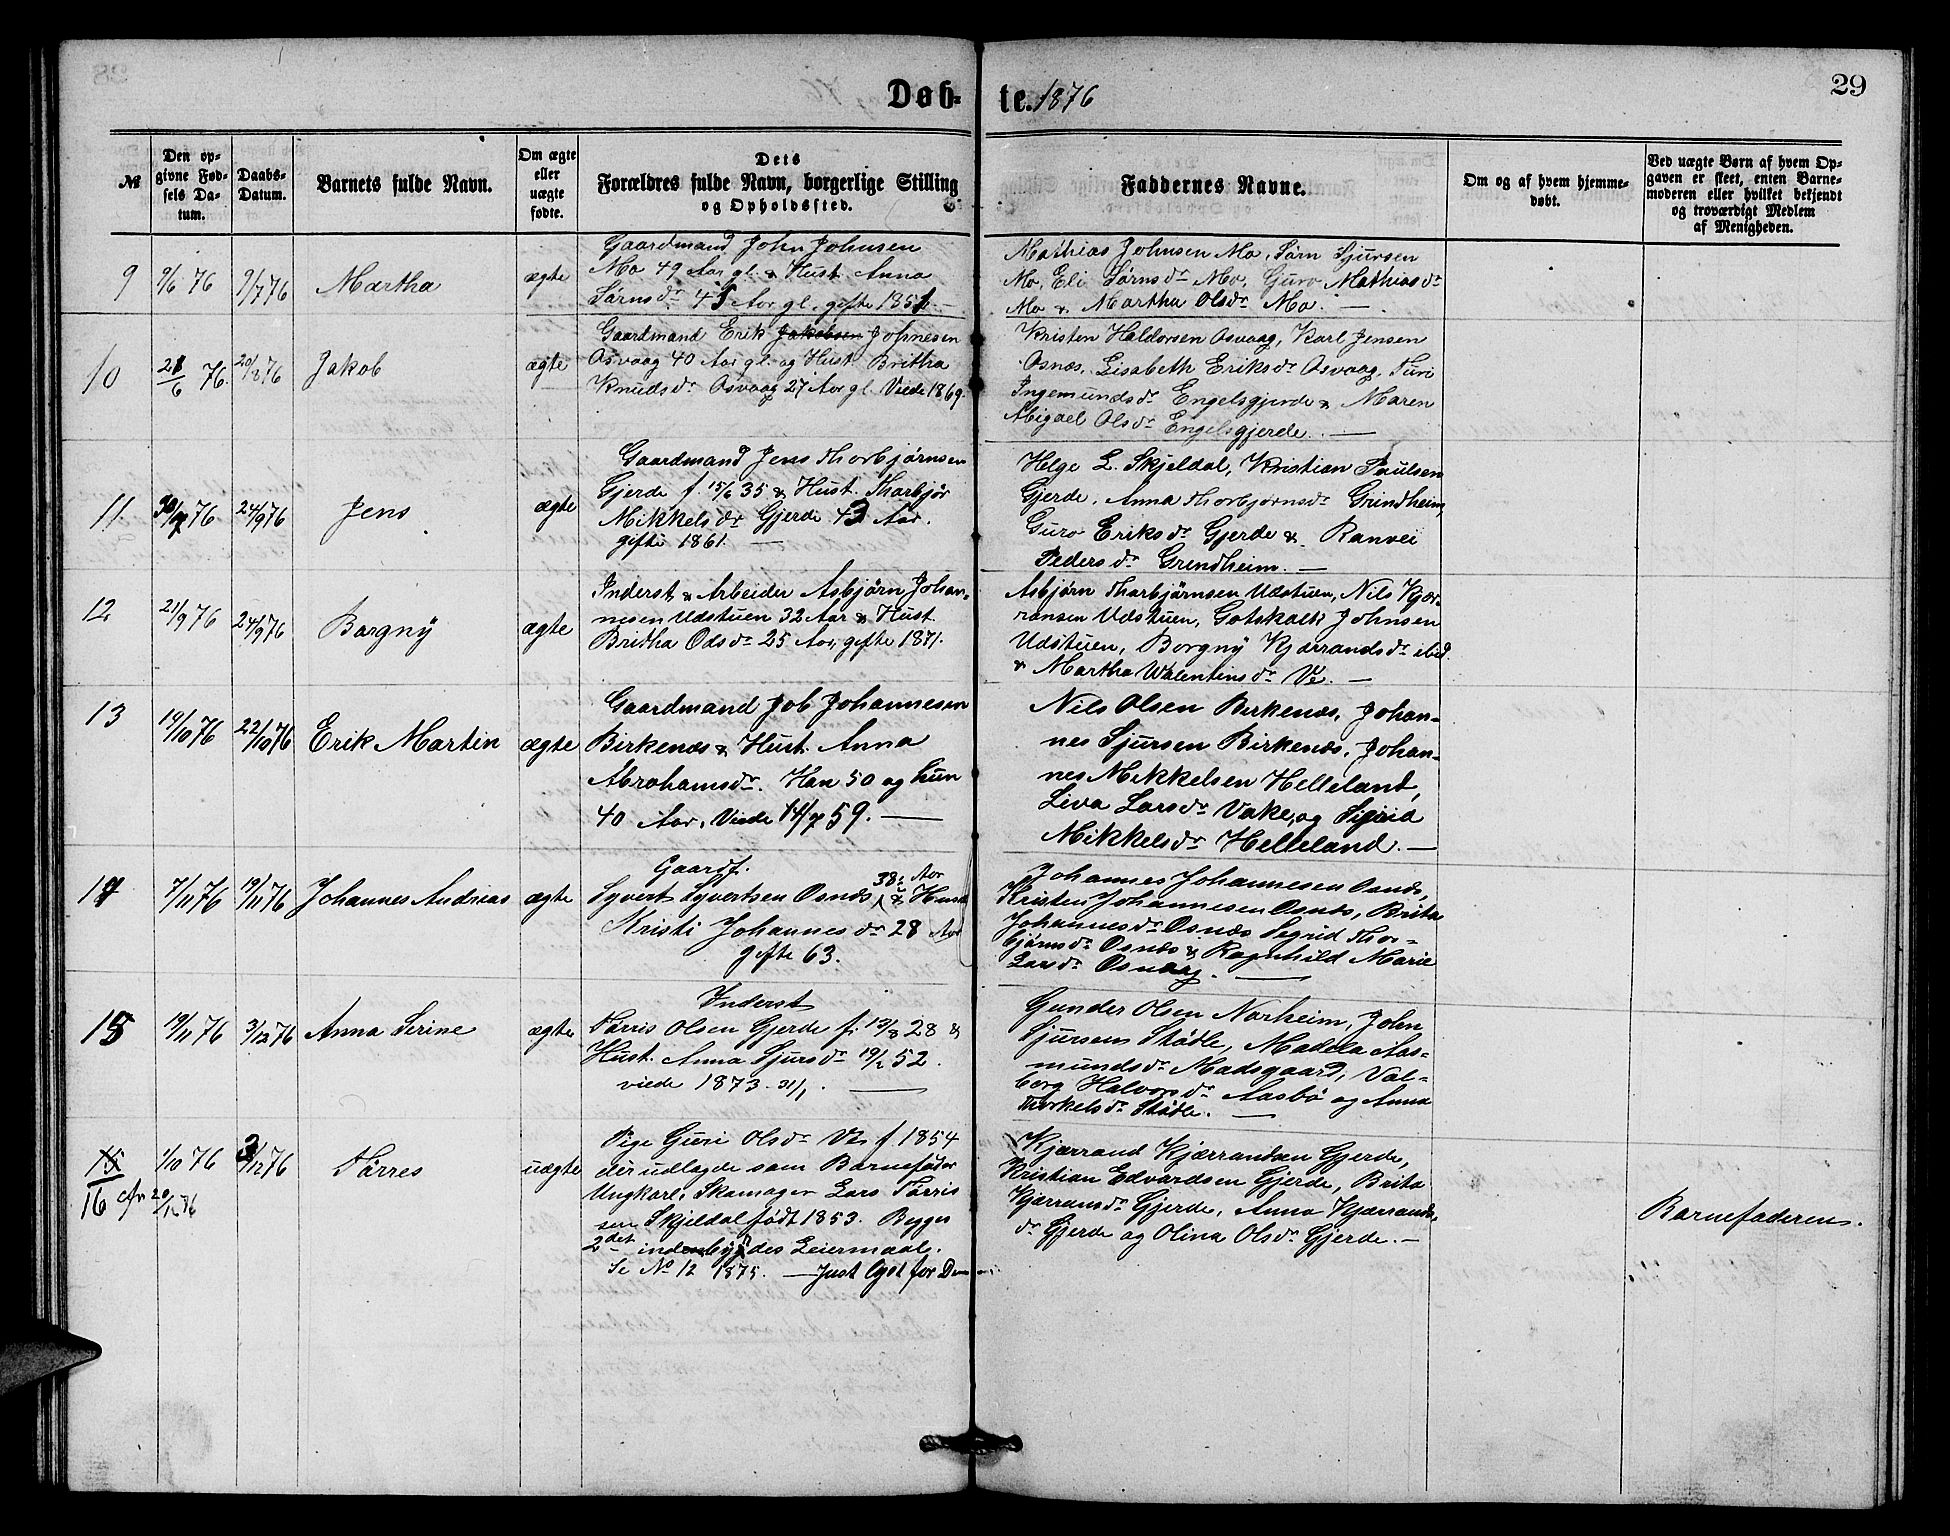 Døb-te. 1876
29
№
Den op-
givne Fød-
sels Da-
tum.
Daabs-
Datum.
Barnets fulde Navn.
Om ægte
eller
uægte
fødte.
Dets
Forældres fulde Navn, borgerlige Stilling
og Opholdssted.
Faddernes Navne.
Om og af hvem hjemme-
døbt.
Ved uægte Børn af hvem Op-
gaven er skeet, enten Barne-
moderen eller hvilket bekjendt
og troværdigt Medlem
af Menigheden.
9
9/6 76
9/7 76
Martha
ægte
Gaardmand John Johnsen
Mo 49 Aar gl. & Hust. Anna
Sørnsdr 45 Aar gl. gifte 1851. —
Mathias Johnsen Mo, Sørn Sjursen
Mo, Eli Sørnsdr Mo, Guro Mathiasdr
Mo & Martha Olsdr Mo. —
10
21/6 76.
20/8 76
Jakob
ægte
Gaardmand Erik Jakobsen Johnesen
Osvaag 40 Aar gl. og Hust. Brittha
Knudsdr Osvaag 27 Aar gl. Viede 1869.
Kristen Haldorsen Osvaag, Karl Jensen
Osnæs, Lisabeth Eriksdr Osvaag, Turi
Ingemundsdr Engelsgjerde & Maren
Abigael Olsdr Engelsgjerde. —
11.
76
24/9 76
Jens
ægte
Gaardmand Jens Thorbjørnsen
Gjerde f. 15/6 35 & Hust. Tharbjør
Mikkelsdr Gjerde 43 Aar.
gifte 1861. —
Helge L. Skjeldal, Kristian Paulsen
Gjerde, Anna Thorbjørnsdr Grindheim,
Guro Eriksdr Gjerde & Ranvei
Pedersdr Grendheim. —
12
21/9 76
24/9 76
Borgny
ægte
Inderst & Arbeider Asbjørn Johan-
nesen Udstuen 32 Aar & Hust.
Bridtha Odsdr 25 Aar, gifte 1871.
Asbjørn Tharbjørnsen Udstuen, Nils Kjær-
ransen Udstuen, Gotskalk Johnsen
Udstuen, Borgny Kjærrandsdr ibid.
& Martha Walentinsdr Ve. —
13
19/10 76
22/10 76
Erik Martin
ægte
Gaardmand Job Johannesen
Birkenæs & Hust. Anna
Abrahamsdr. Han 50 og hun
40 Aar. Viede 14/7 59. —
Nils Olsen Birkenæs, Johan-
nes Sjursen Birkenæs, Johan-
nes Mikkelsen Helleland,
Siva Larsdr Vake, og Sigrid
Mikkelsdr Helleland. —
14
7/11 76
19/11 76
Johannes Andreas
ægte
Gaardf.
Syvert Syvertsen Osnæs 38 Aar & Hustr
Kristi Johannesdr 28 Aar
gifte 63.
Johannes Johannesen Osnæs,
Kristen Johannesen Osnæs, Brita
Johannesdr Osnæs Segrid Thor-
bjørnsdr Osnæs & Ragnhild Marie
Larsdr Osvaag. —
15
19/11 76
3/12 76
Anna Serine
ægte
Inderst
Tørris Olsen Gjerde f. 13/8 28 &
Hust. Anna Sjursdr 19/2 52.
viede 1873 31/1. —
Gunder Olsen Norheim, John
Sjursen Stødle, Madela Aas-
mundsdr Madsgaard, Val-
borg Halvorsdr Aasbø og Anna
Thorkelsdr Stødle. —
15
16
1/10 76
3/12 76
Tørres
uægte
Pige Guri Olsdr Ve f. 1854
der udlagde som Barnefader
Ungkarl, Skomager Lars Tørris
sen Skjeldal født 1853. Begges
2det indenbyg des Leiermaal.
Se No 12 1875. —
Kjærrand Kjærrantsen Gjerde,
Kristian Edvardsen Gjerde, Brita
Kjærransdr Gjerde, Anna Kjærrands-
dr Gjerde og Olina Olsdr Gjerde. —
Barnefaderen.